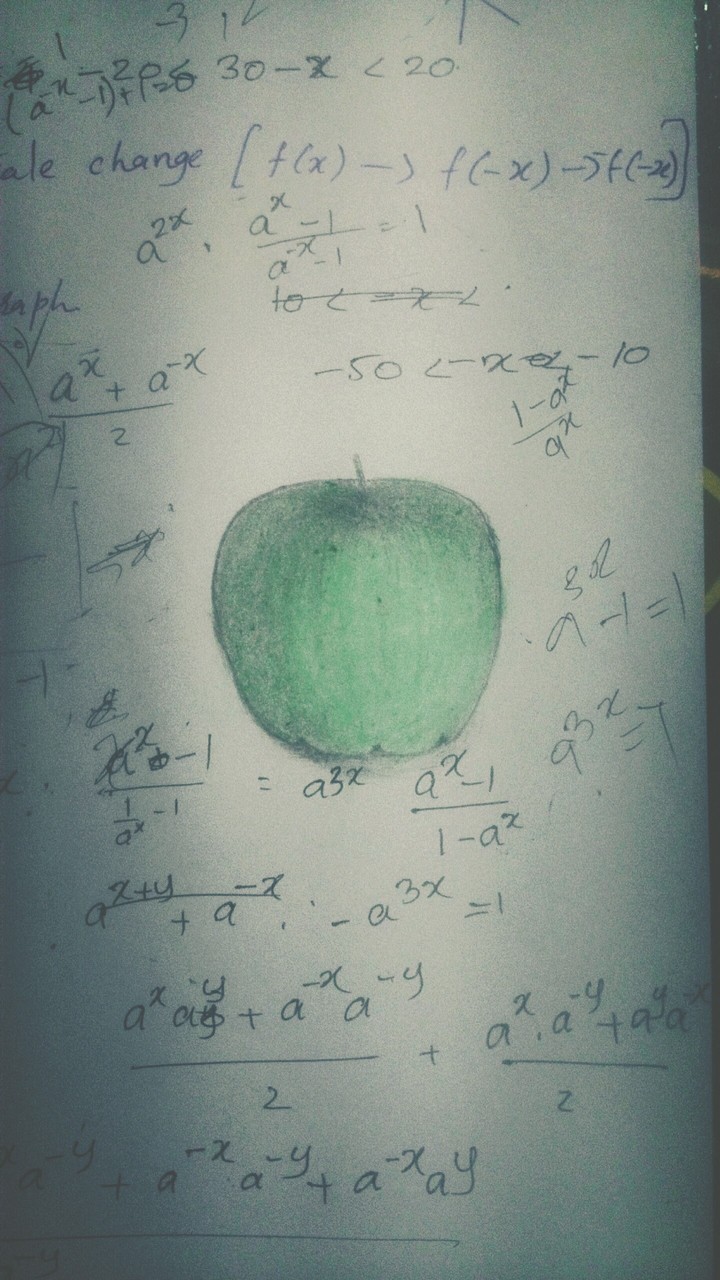 30 - x < 20
ale change [f(x) -> f(-x) -> f(-x)]
a^{2x} . \frac{a^x - 1}{a^{-x} - 1} = 1
10 < = x <
raph
-50 < -x < -10
\frac{a^x + a^{-x}}{2}
\frac{1 - a^x}{a^x}
a^{3x} - 1 = 1
-1
\frac{a^x - 1}{\frac{1}{a^x} - 1} = a^{3x} \frac{a^x - 1}{1 - a^x}
a^{3x} = 1
a^{x+y} + a^{-x} . - a^{3x} = 1
\frac{a^x a^y + a^{-x} a^{-y}}{2} + \frac{a^x . a^{-y} + a^y a^{-x}}{2}
a^{-y} + a^{-x} . a^{-y} + a^{-x} a^y